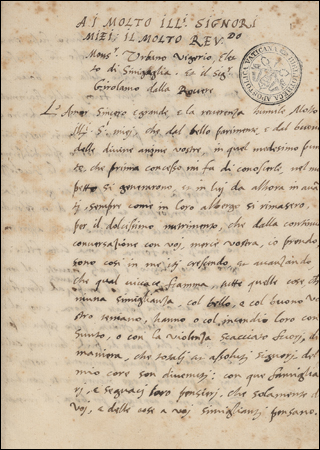 AI MOLTO ILL.ri SIGNORI
MIEI, IL MOLTO REV.DO
Mons.r Urbano Vigerio, Elet
to di Sinigaglia, Et il Sig.r
Girolamo dalla Rovere
BIBLIOTHECA APOSTOLICA VATICANA
L'Amor Sincero e grande, e la reverenza humile, Molto
Ill.ri S.ri miei, che dal bello parimente, e dal buono
delle divine anime vostre, in quel medesimo punto
te, che prima concesso mi fu di conoscerle, nel mio
petto si generarono, et in lui da allhora in avan
ti sempre come in loro albergo si rimasero,
per il dolcissimo nutrimento, che dalla continua
conversazione con voi, mercè vostra, io prendo
sono così in me iti crescendo, et avanzando
che qual vivace fiamma, tutte quelle cose, che
niuna simiglianza, col bello, e col buono vo
stro teneano, hanno o col incendio loro con
sunto, o con la violenza scacciato fuori, di
maniera, che totali et assoluti signori, del
mio core son divenuti: con que famiglia
ri, e seguaci loro pensieri, che solamente di
voi, e delle cose a voi simiglianti pensano.